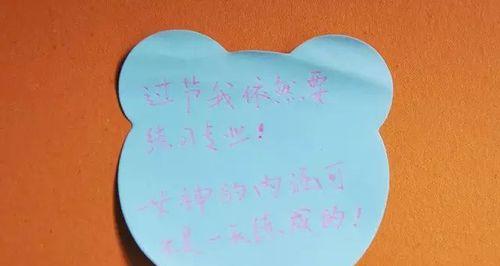 过节我依然要
练习专业！
女神的内涵可
不是一天练成的！